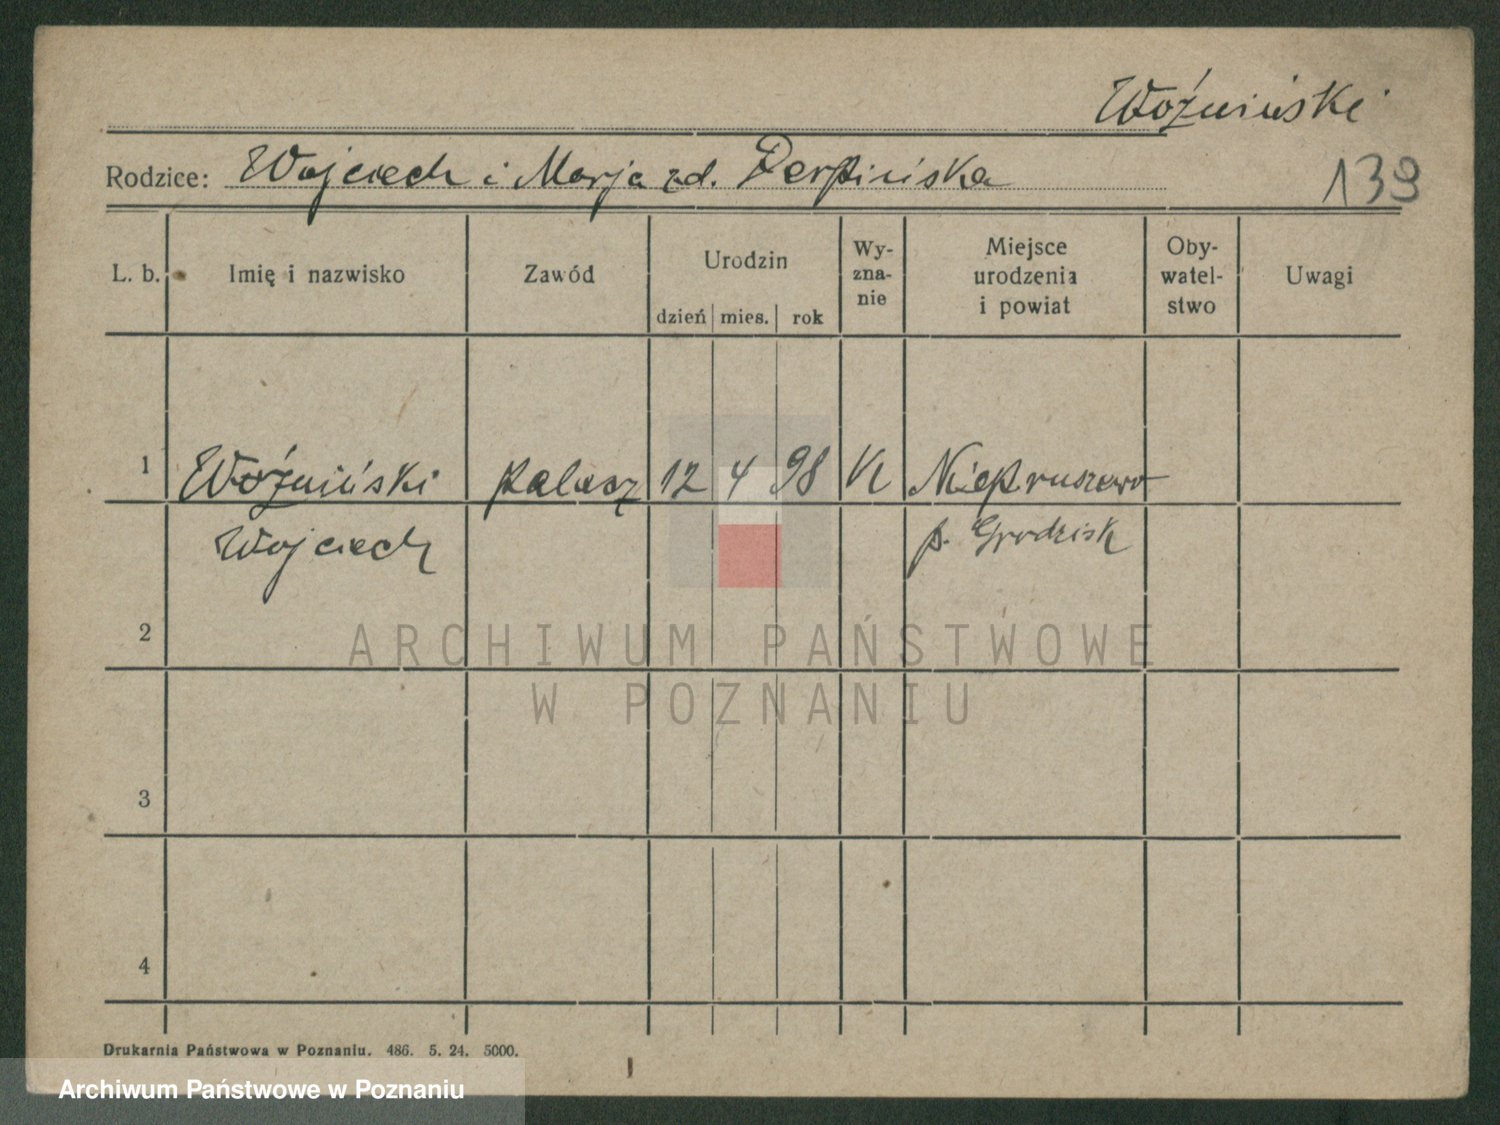 Woźniński
Rodzice: Wojciech i Marja zd. Perpińska
139
L. b. Imię i nazwisko Zawód Urodzin dzień mies. rok Wy-zna-nie Miejsce urodzenia i powiat Oby-watel-stwo Uwagi
1 Woźniński palacz 12 4 98 K Niepruszewo
Wojciech p. Grodzisk
2
ARCHIWUM PAŃSTWOWE
W POZNANIU
3
4
Drukarnia Państwowa w Poznaniu. 486. 5. 24. 5000.
Archiwum Państwowe w Poznaniu